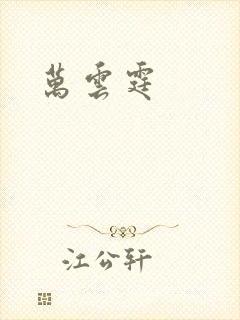 萬雲霆
江公軒